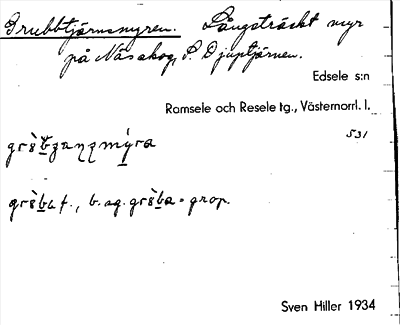 Grubbtjärnsmyren. Långsträckt myr
på Näsaskog, S. Djuptjärnen.
Edsele s:n
Ramsele och Resele tg., Västernorrl. l.
531
f., b. sg. = grop.
Sven Hiller 1934